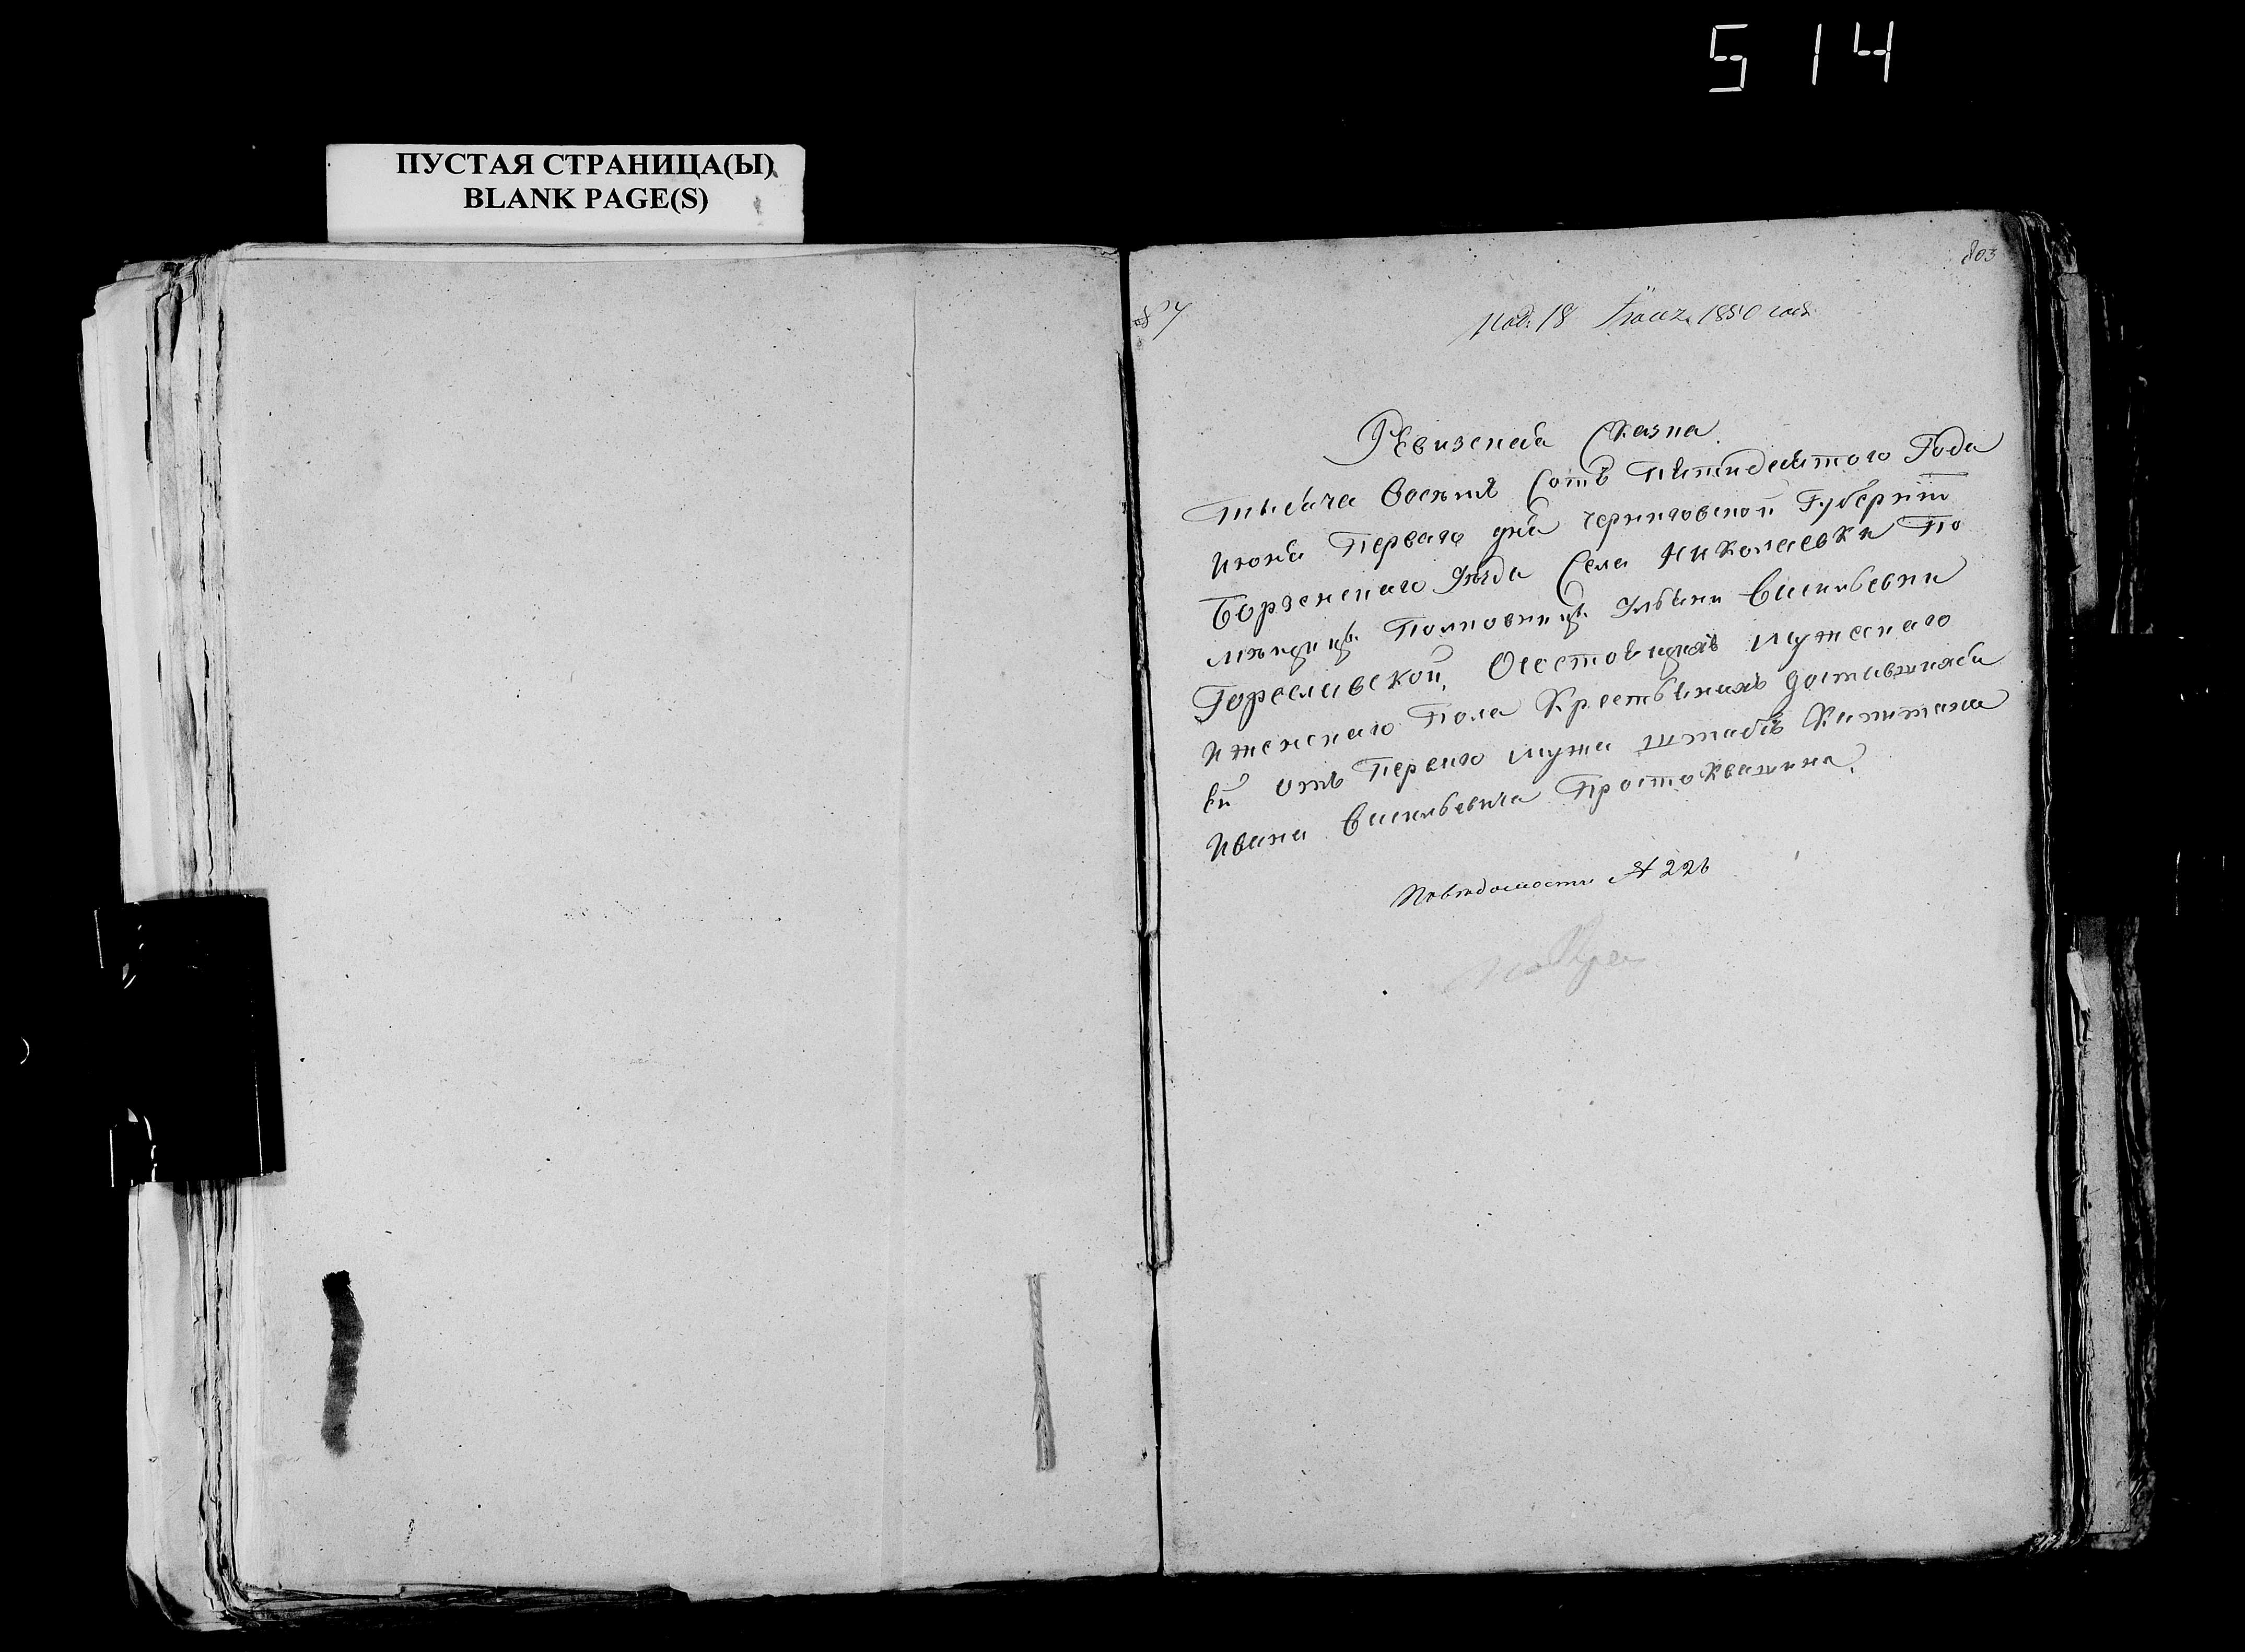 5 14
ПУСТАЯ СТРАНИЦА(Ы)
BLANK PAGE(S)
803
№ 7
Под. 18 1850 года
Ревизская Сказка
Тысяча восемь Сотъ Пятидесятого Года
Июня Перваго дня Черниговской Губернїи
Борзенскаго Уезда Села Николаевки По
мѣщицы Полковницы Ульяни Васильевни
Гореславской, О состоящихъ мужескаго
и женскаго Пола Крестьянахъ доставшихся
ей отъ Перваго мужа Штабсъ Капитана
Ивана Васильевича Простоквашина.
По вѣдомости № 226